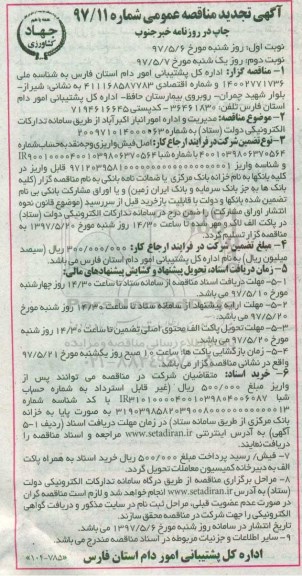 آگهی تجدید مناقصه عمومی شماره ۹۷/۱۱
همیار با هم
جهاد
کشاورزی
چاپ در روزنامه خبر جنوب
نوبت اول: روز شنبه مورخ ۹۷/۵/۶
نوبت دوم: روز یک شنبه مورخ ۹۷/۵/۷
۱- مناقصه گزار: اداره کل پشتیبانی امور دام استان فارس به شناسه ملی
۱۴۰۰۰۲۷۷۱۷۳۶ و شماره اقتصادی ۴۱۱۱۶۸۵۸۷۷۸۳ به نشانی: شیراز-
بلوار شهید چمران- روبروی بیمارستان حافظ- اداره کل پشتیبانی امور دام
استان فارس تلفن: ۳۶۴۶۱۸۳۰ - کدپستی ۷۱۹۴۶۱۶۶۴۵
۲- موضوع مناقصه: مدیریت و اداره امور انبار اکبرآباد از طریق سامانه تدارکات
الکترونیکی دولت (ستاد) به شماره ۲۰۰۹۷۱۰۱۴۰۰۰۰۶۳
۳- نوع تضمین شرکت در فرآیند ارجاع کار: اصل فیش واریزی وجه نقد به حساب شماره
کلیه بانکها به نام خزانه بانک مرکزی یا ضمانت نامه بانکی به نام مناقصه گزار (کلیه
بانک ها به جز بانک سرمایه و بانک ایران زمین) و یا اوراق مشارکت بانکی بی نام
تضمین شده بانکها و دولت با قابلیت بازخرید قبل از سررسید (موضوع قانون نحوه
انتشار اوراق مشارکت)
در پاکت الف لاک و مهر شده تا ساعت ۱۴/۳۰ روز شنبه مورخ ۱۳۹۷/۵/۲۰ به
مناقصه گزار تسلیم گردد.
۴- مبلغ تضمین شرکت در فرآیند ارجاع کار: ۳۰۰/۰۰۰/۰۰۰ ریال (سیصد
میلیون ریال) به نام اداره کل پشتیبانی امور دام استان فارس می باشد.
۵- زمان دریافت اسناد، تحویل پیشنهاد و گشایش پیشنهادهای مالی:
۵-۱- مهلت دریافت اسناد مناقصه از سامانه ستاد تا ساعت ۱۴/۳۰ روز چهارشنبه
مورخ ۹۷/۵/۱۰ می باشد.
۵-۲- مهلت ارایه پیشنهاد از سامانه ستاد تا ساعت ۱۴/۳۰ روز شنبه مورخ
۹۷/۵/۲۰ می باشد.
۵-۳- مهلت تحویل پاکت الف محتوی اصل تضمین تا ساعت ۱۴/۳۰ روز شنبه
مورخ ۹۷/۵/۲۰ می باشد.
۵-۴- زمان بازگشایی پاکت ها: ساعت ۱۰ صبح روز یکشنبه مورخ ۹۷/۵/۲۱
واقع در نشانی مناقصه گزار می باشد.
۶- خرید اسناد: متقاضیان شرکت در مناقصه می توانند پس از
واریز مبلغ ۵۰۰/۰۰۰ ریال (غیر قابل استرداد) به شماره حساب
شبا IR۳۱۰۱۰۰۰۰۴۰۰۱۰۳۹۸۰۴۰۰۶۰۸۷ با کد شناسه شماره
به صورت پایا به خزانه
بانک مرکزی از طریق سامانه ستاد) در زمان مهلت دریافت اسناد (ردیف ۵-۱
آگهی) به آدرس اینترنتی www.setadiran.ir مراجعه و اسناد مناقصه را
دریافت نمایند.
۷- فیش/ رسید پرداخت مبلغ ۵۰۰/۰۰۰ ریال خرید اسناد به همراه پاکت
الف به دبیرخانه کمیسیون معاملات تحویل گردد.
۸- مراحل برگزاری مناقصه از طریق درگاه سامانه تدارکات الکترونیکی دولت
(ستاد) به آدرس www.setadiran.ir انجام خواهد شد و لازم است مناقصه گران
در صورت عدم عضویت قبلی، مراحل ثبت نام در سایت مذکور و دریافت گواهی
الکترونیکی را جهت شرکت در مناقصه محقق سازند.
تاریخ انتشار در سامانه روز شنبه مورخ ۱۳۹۷/۵/۶ می باشد.
۹- سایر اطلاعات و جزئیات مربوطه در اسناد مناقصه مندرج می باشد.
اداره کل پشتیبانی امور دام استان فارس
«۱۰۲۰۷۸۵»